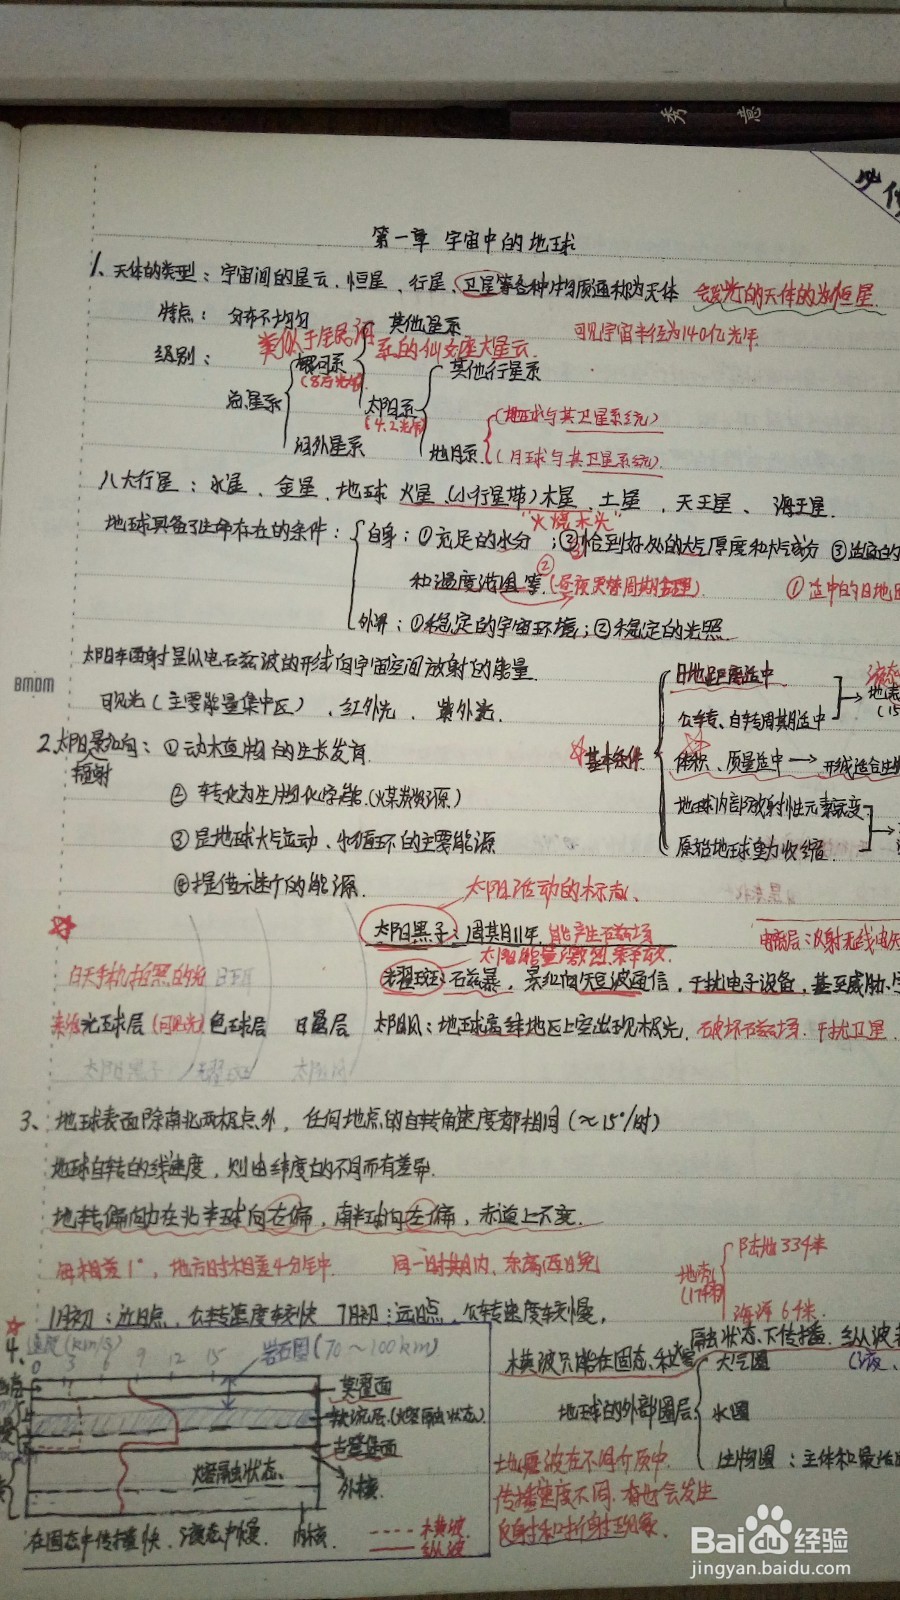 秀 意
第一章 宇宙中的地球
1、天体的类型：宇宙间的星云、恒星、行星、卫星等各种物质通称为天体 会发光的天体的为恒星
特点：分布不均匀 其他星系 可见宇宙半径为140亿光年
级别： 类似于 系的仙女座大星云
银河系 其他行星系
总星系 太阳系 (地球与其卫星系统)
(4.2光年)
河外星系 地月系 (月球与其卫星系统)
八大行星：水星、金星、地球、火星、(小行星带)木星、土星、天王星、海王星.
"火烧木头"
地球具备了生命存在的条件： 自身：①充足的水分；②恰到好处的大气厚度和大气成分 ③适宜的
和温度范围等.(昼夜更替周期合理) ①适中的日地
外界：①稳定的宇宙环境；②稳定的光照
太阳辐射是以电磁波的形式向宇宙空间放射的能量. 日地距离适中 液态
BMDM
可见光(主要能量集中区)、红外光、紫外光. 公转、自转周期适中 地表 (15
2.太阳辐射影响：①动植物的生长发育 基本条件 体积、质量适中→形成适合生物
②转化为生物化学能.(煤炭资源) 地球内部放射性元素衰变
③是地球大气运动、水循环的主要能源 原始地球重力收缩
④提供生产的能源. 太阳活动的标志
太阳黑子：周期11年. 能产生磁场 电离层：反射无线电短
太阳能量 激烈
日珥 耀斑：磁暴，影响短波通信，干扰电子设备，甚至威胁
光球层(可见光) 色球层 日冕层 太阳风：地球高纬地区上空出现极光. 破坏磁场. 干扰卫星
太阳黑子 耀斑 太阳风
3、地球表面除南北两极点外，任何地点的自转角速度都相同(≈15°/时)
地球自转的线速度，则由纬度的不同而有差异.
地转偏向力在北半球向右偏，南半球向左偏，赤道上不变.
每相差1°，地方时相差4分钟. 同一时期内，东 西 陆地 33千米
地壳 (17千米)
海洋 6千米.
1月初：近日点，公转速度较快 7月初：远日点，公转速度较慢，
4、速度(km/s) 岩石圈(70～100km) 横波只能在固态 大气圈
0 3 6 9 12 15
莫霍面
软流层.(熔融状态) 地球的外部圈层 水圈
古登堡面
生物圈：主体和最活
熔融状态 外核 地震波在不同介质中
传播速度不同. 也会发生
在固态中传播快、液态中慢 内核 横波 反射和折射现象.
纵波
Baidu经验
jingyan.baidu.com